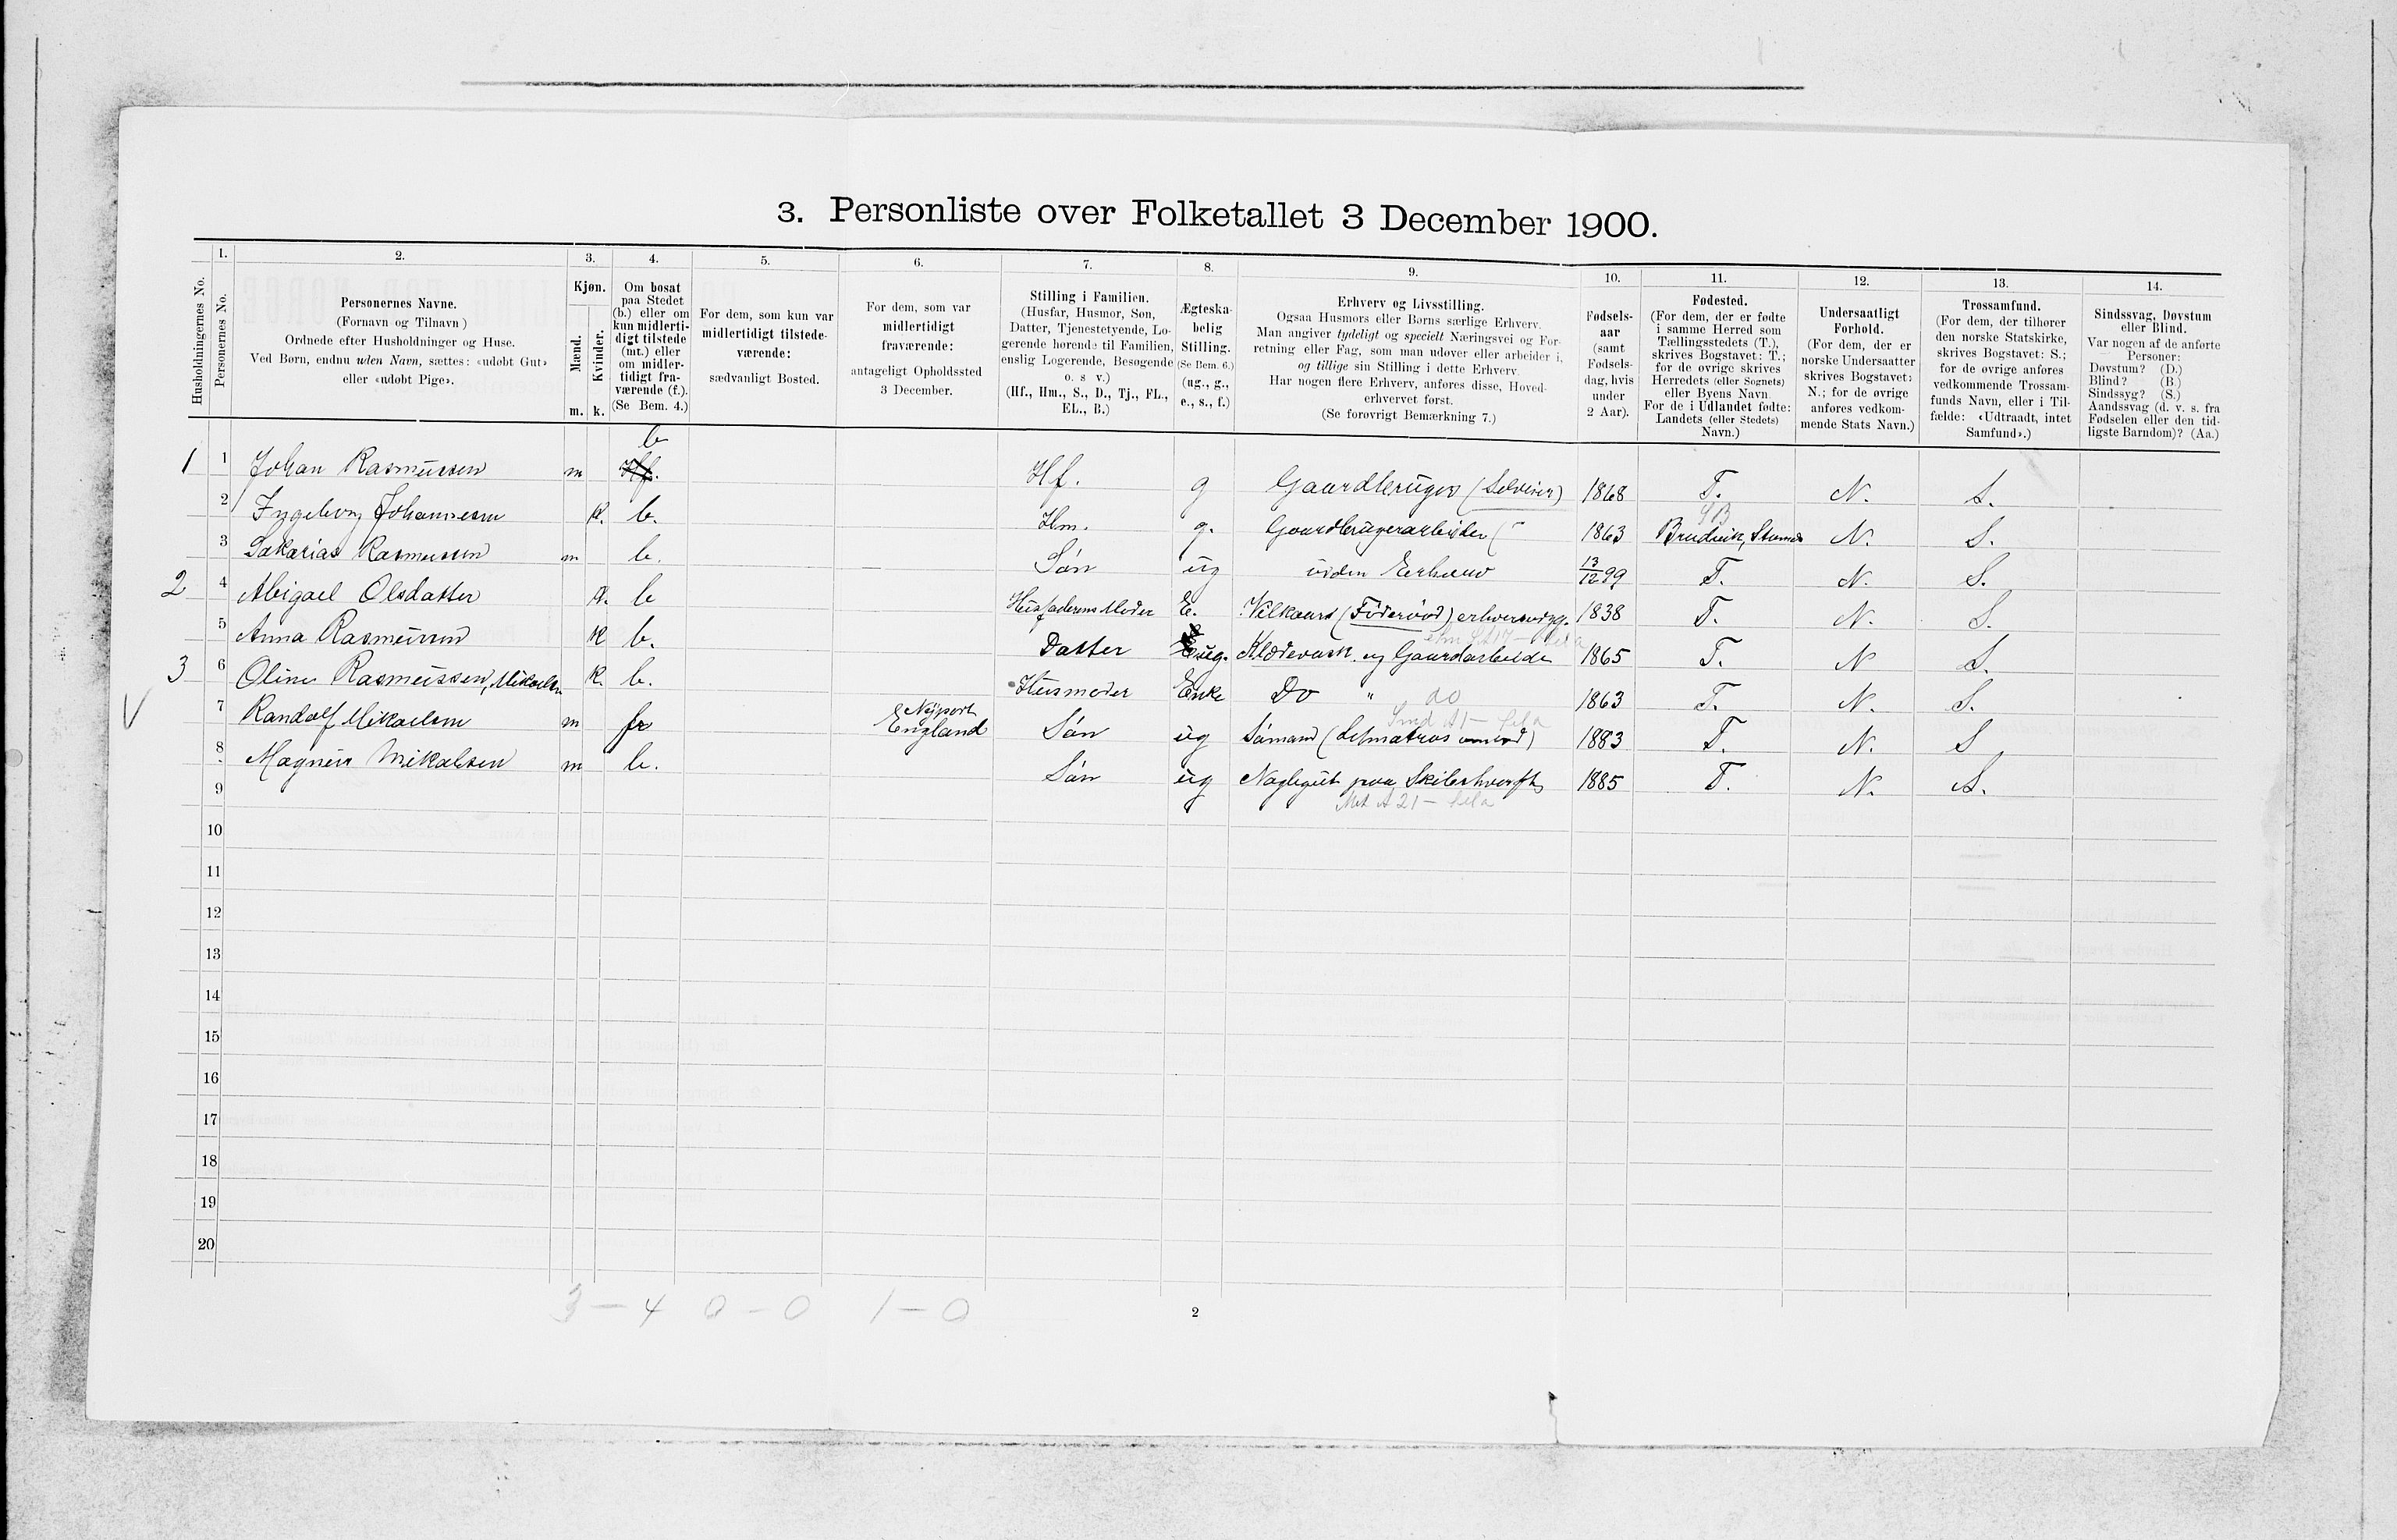 3. Personliste over Folketallet 3 December 1900.
1. 2. 3. 4. 5. 6. 7. 8. 9. 10. 11. 12. 13. 14.
Husholdningernes No.
Personernes No.
Personernes Navne.
(Fornavn og Tilnavn)
Ordnede efter Husholdninger og Huse.
Ved Børn, endnu uden Navn, sættes: «udøbt Gut»
eller «udøbt Pige».
Kjøn.
Mænd.
Kvinder.
m. k.
Om bosat
paa Stedet
(b.) eller om
kun midlerti-
digt tilstede
(mt.) eller
om midler-
tidigt fra-
værende (f.).
(Se Bem. 4.)
For dem, som kun var
midlertidigt tilstede-
værende:
sædvanligt Bosted.
For dem, som var
midlertidigt
fraværende:
antageligt Opholdssted
3 December.
Stilling i Familien.
(Husfar, Husmor, Søn,
Datter, Tjenestetyende, Lo-
gerende hørende til Familien,
enslig Logerende, Besøgende
o. s v.)
(Hf., Hm., S., D., Tj., FL.,
EL., B.)
Ægteska-
belig
Stilling.
(Se Bem. 6.)
(ug., g.,
e., s., f.)
Erhverv og Livsstilling.
Ogsaa Husmors eller Børns særlige Erhverv.
Man angiver tydeligt og specielt Næringsvei og For-
retning eller Fag, som man udøver eller arbeider i,
og tillige sin Stilling i dette Erhverv.
Har nogen flere Erhverv, anføres disse, Hoved-
erhvervet først.
(Se forøvrigt Bemærkning 7.)
Fødsels-
aar
(samt
Fødsels-
dag, hvis
under
2 Aar).
Fødested.
(For dem, der er fødte
i samme Herred som
Tællingsstedets (T.),
skrives Bogstavet: T.;
for de øvrige skrives
Herredets (eller Sognets)
eller Byens Navn.
For de i Udlandet fødte:
Landets (eller Stedets)
Navn.)
Undersaatligt
Forhold.
(For dem, der er
norske Undersaatter
skrives Bogstavet:
N.; for de øvrige
anføres vedkom-
mende Stats Navn.)
Trossamfund.
(For dem, der tilhører
den norske Statskirke,
skrives Bogstavet: S.;
for de øvrige anføres
vedkommende Trossam-
funds Navn, eller i Til-
fælde: «Udtraadt, intet
Samfund».)
Sindssvag, Døvstum
eller Blind.
Var nogen af de anførte
Personer:
Døvstum? (D.)
Blind? (B.)
Sindssyg? (S.)
Aandssvag (d. v. s. fra
Fødselen eller den tid-
ligste Barndom)? (Aa.)
b
1 1 Johan Rasmussen m Hf. Hf. g Gaardbruger (Selveier) 1868 T. N. S.
2 Ingeborg Johannesen k. b. Hm. g. Gaardbrugerarbeider 1863 N. S.
3 Sakarias Rasmussen m b. Søn ug uden Erhverv 13/12 99 T. N. S.
2 4 Abigael Olsdatter k. b Husfaderens Moder E. Vilkaars (Föderaad) 1838 T. N. S.
5 Anna Rasmussen k b. Datter ug. Klædevask og Gaardarbeide 1865 T. N S.
3 6 Oline Rasmussen, Mikaelsen k. b. Husmoder Enke Do " do 1863 T. N. S.
V 7 Randolf Mikaelsen m fr Nyport
England Søn ug Sømand (Letmatros) 1883 T. N. S.
8 Magnus Mikalsen m b. Søn ug Naglegut paa Skibshverft 1885 T. N. S.
9
10
11
12
13
14
15
16
17
18
19
20
3 – 4 0 – 0 1 – 0
2